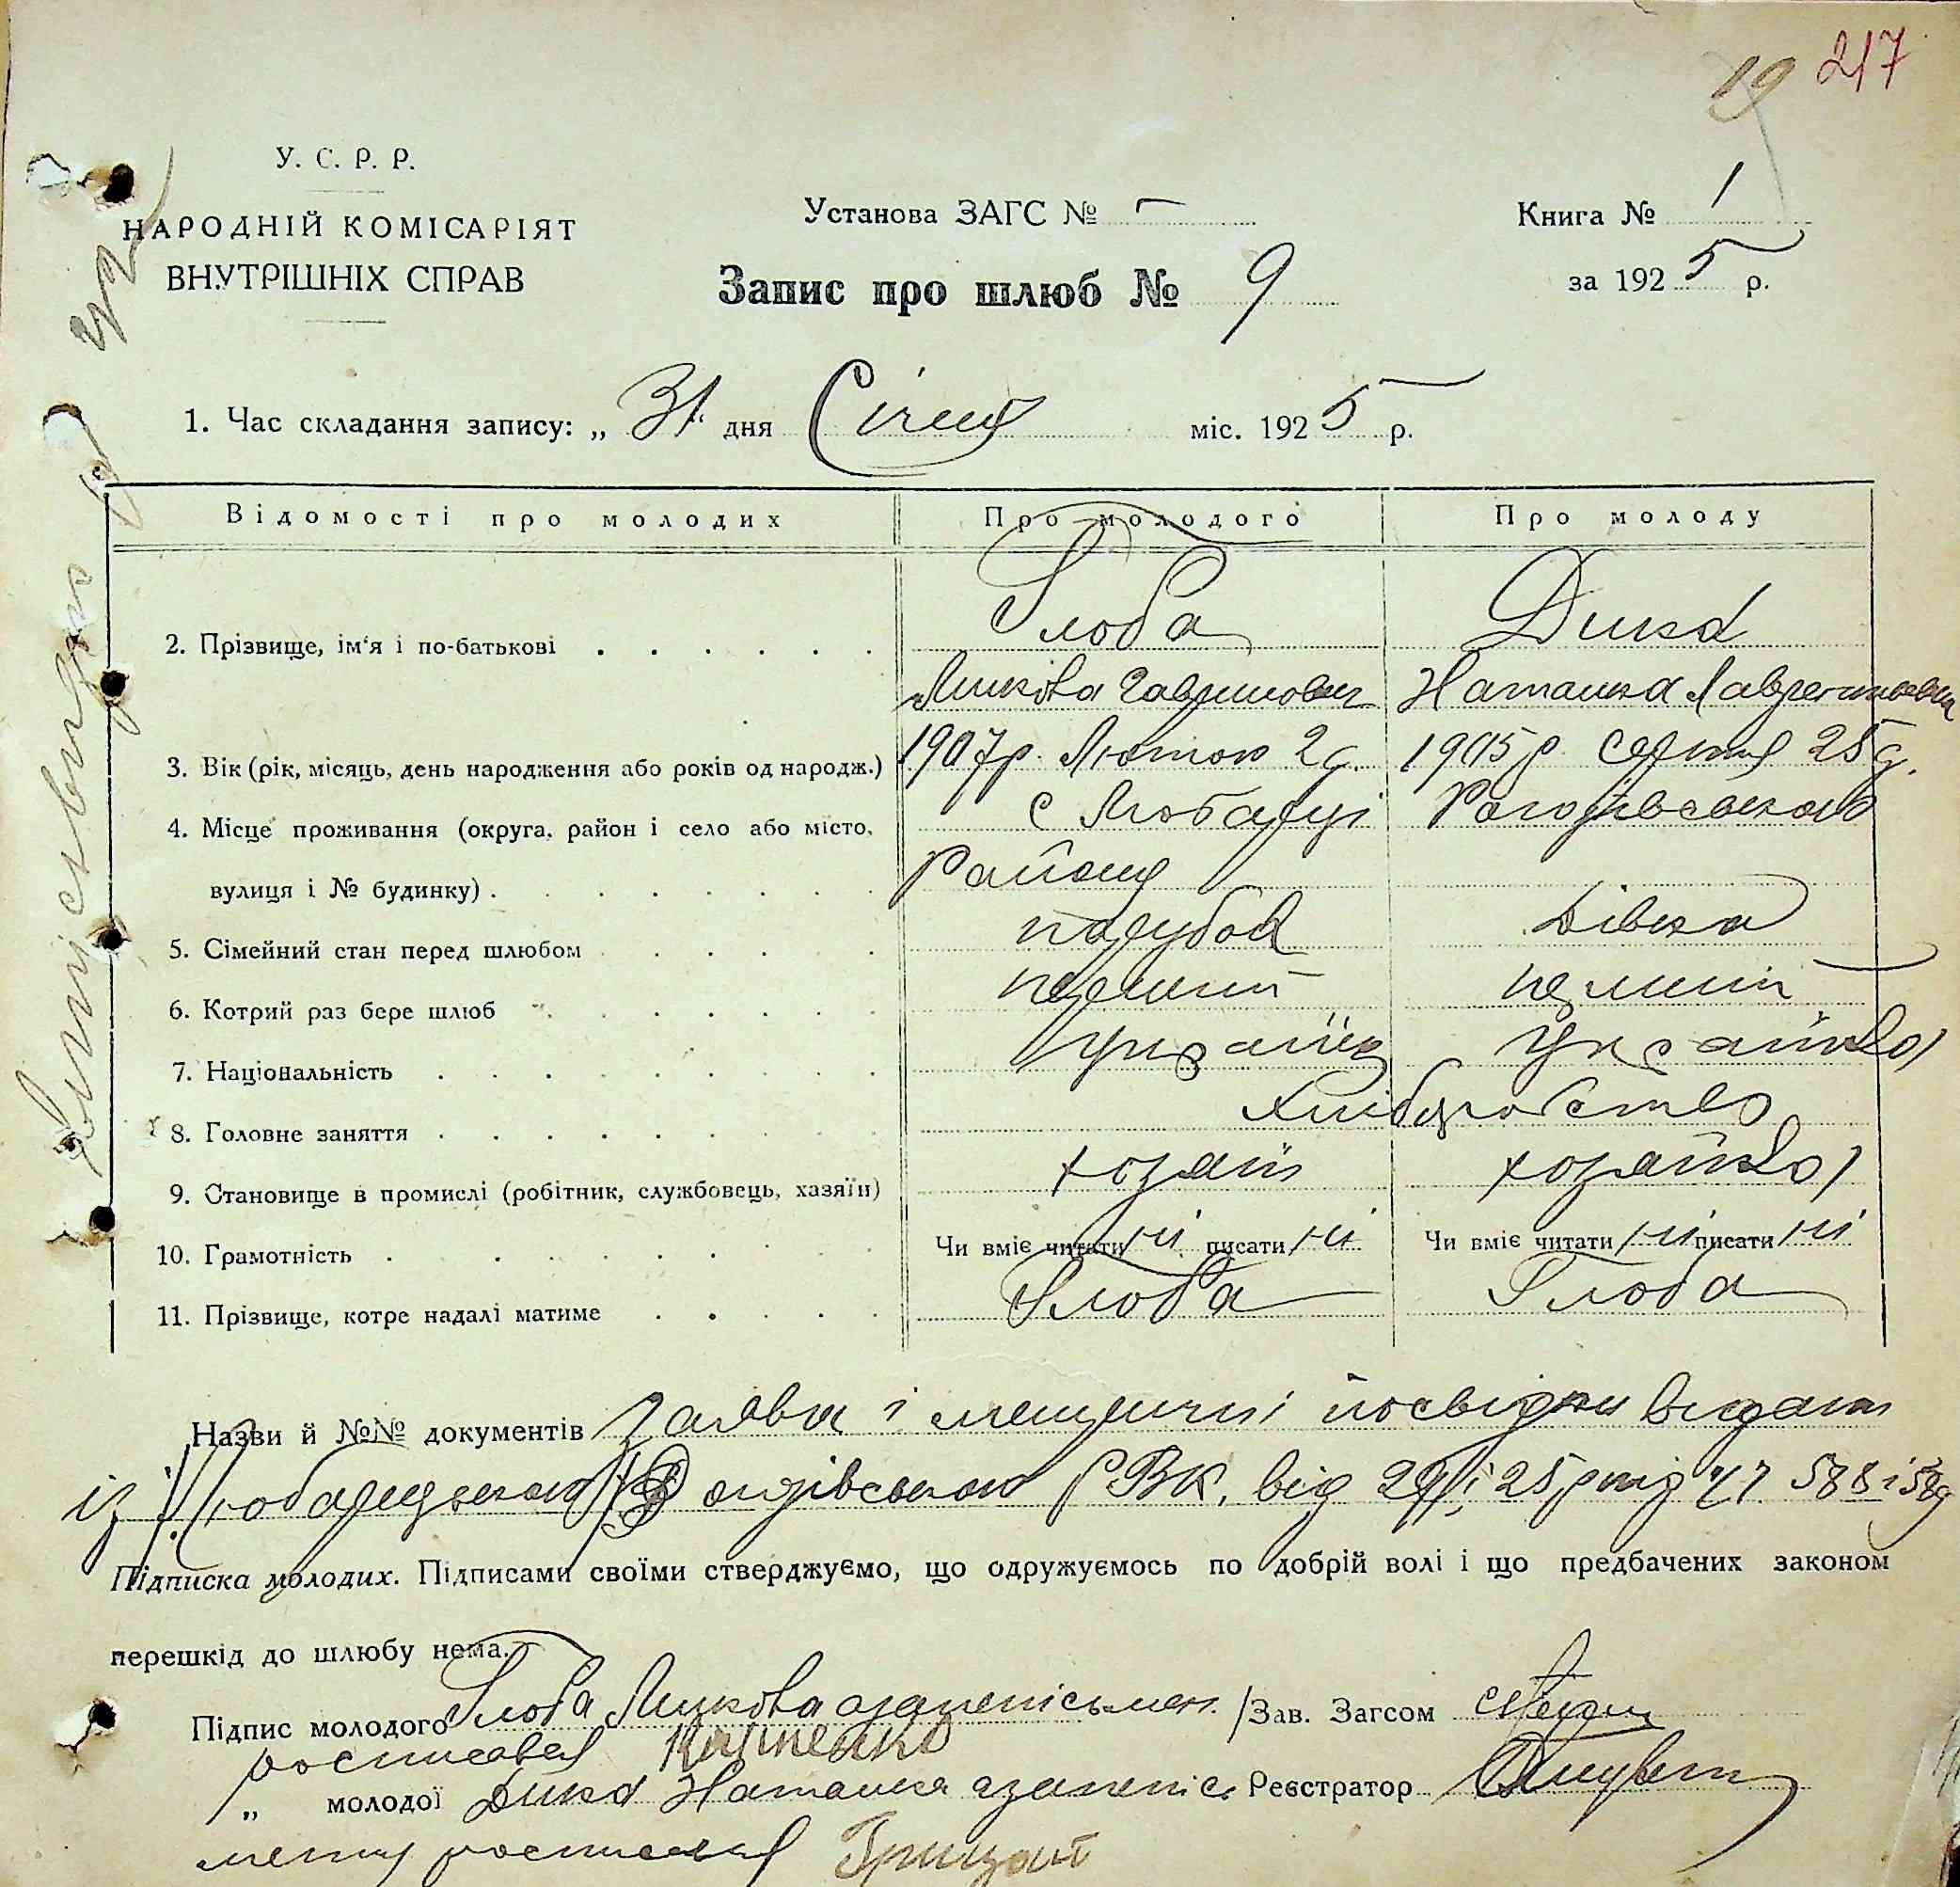 19 217
У. С. Р. Р.
НАРОДНІЙ КОМІСАРІЯТ
ВНУТРІШНІХ СПРАВ
Установа ЗАГС № —
Книга № 1
Запис про шлюб № 9
за 1925 р.
1. Час складання запису: „31“ дня Січня міс. 1925 р.
Відомості про молодих
Про молодого
Про молоду
2. Прізвище, ім'я і по-батькові
Глоба
Дика
Микола Гаврилович
Наталка
3. Вік (рік, місяць, день народження або років од народж.)
1907р. Лютого 2 д.
1905 р Серпня 25 д.
4. Місце проживання (округа, район і село або місто,
вулиця і № будинку)
с Любарці Рогозівського
Району
5. Сімейний стан перед шлюбом
парубок
дівка
6. Котрий раз бере шлюб
перший
перший
7. Національність
Україн
8. Головне заняття
Хліборобство
9. Становище в промислі (робітник, службовець, хазяїн)
хозяїн
хозяйка
10. Грамотність
Чи вміє читати ні писати ні
Чи вміє читати ні писати ні
11. Прізвище, котре надалі матиме
Глоба
Глоба
Назви й №№ документів Заява і посвідки видані
із Любарецького від 29/І 25 р під чч 588 і 589
Підписка молодих. Підписами своїми стверджуємо, що одружуємось по добрій волі і що предбачених законом
перешкід до шлюбу нема.
Підпис молодого Глоба Микола за неписьмен. /Зав. Загсом
росписався
„ молодої Дика Наталка за непис Реєстратор
менну росписався Грицай